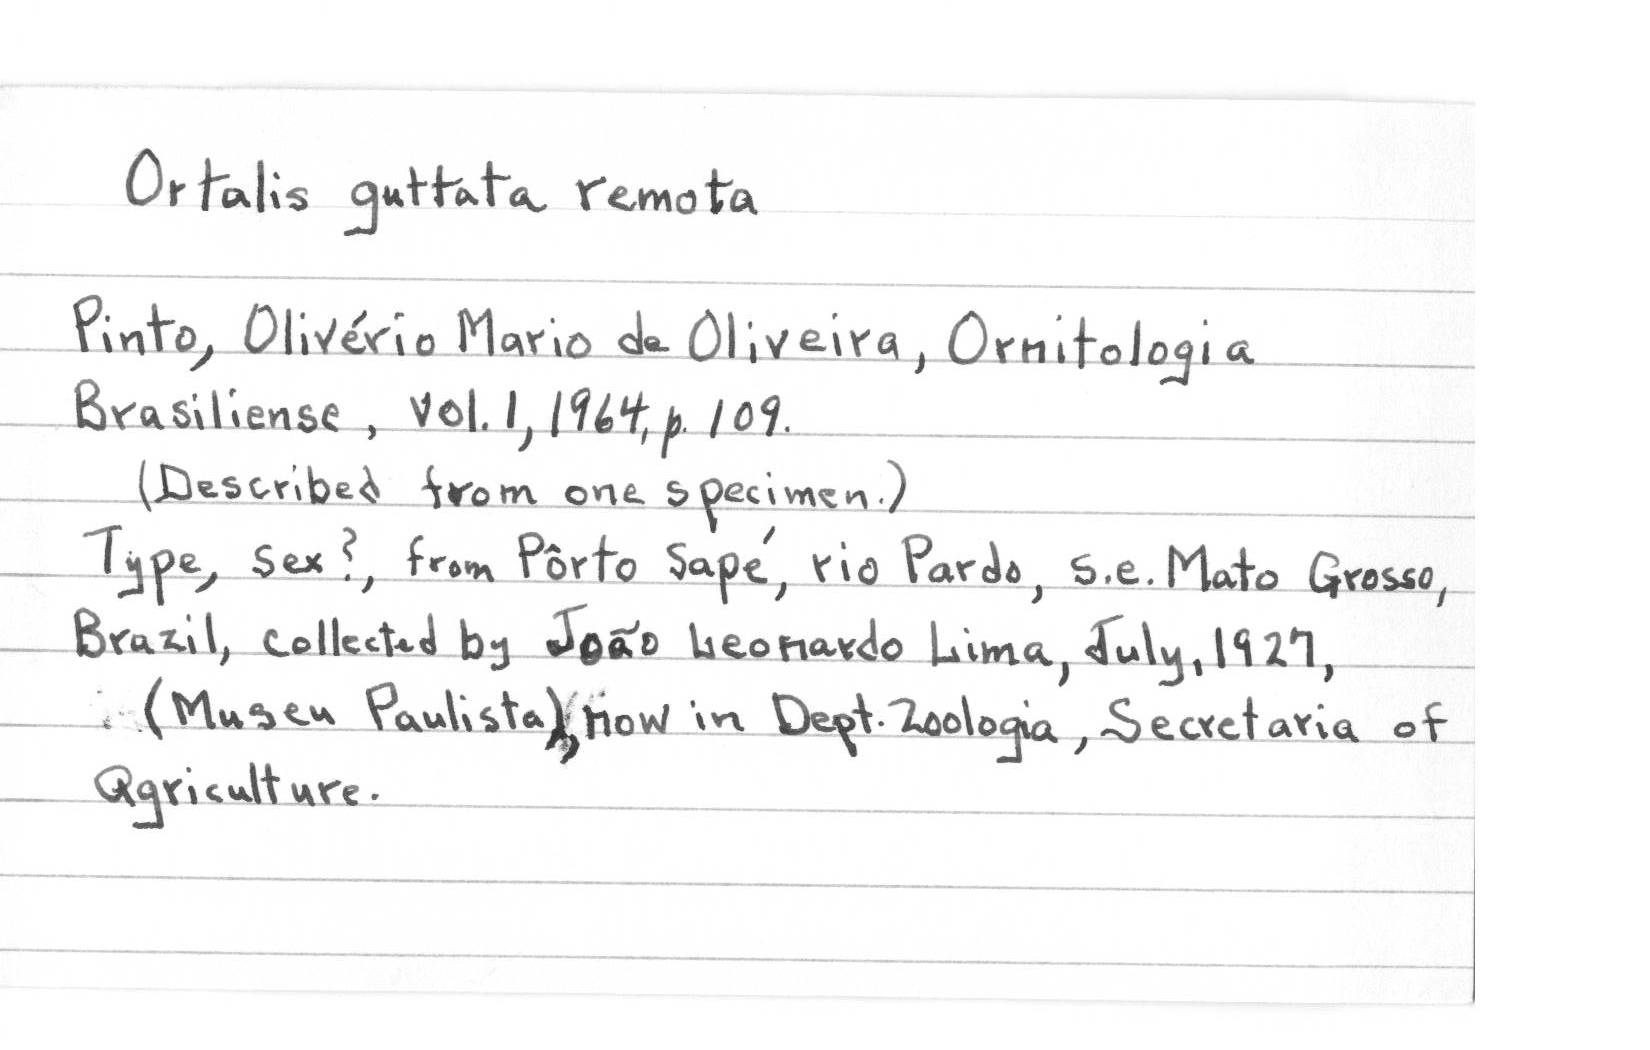 Ortalis guttata remota
Pinto, Olivério Mario de Oliveira, Ornitologia
Brasiliense, Vol. 1, 1964, p. 109.
(Described from one specimen.)
Type, sex?, from Pôrto Sapé, rio Pardo, s.e. Mato Grosso,
Brazil, collected by João Leonardo Lima, July, 1927,
(Museu Paulista), now in Dept. Zoologia, Secretaria of
Agriculture.